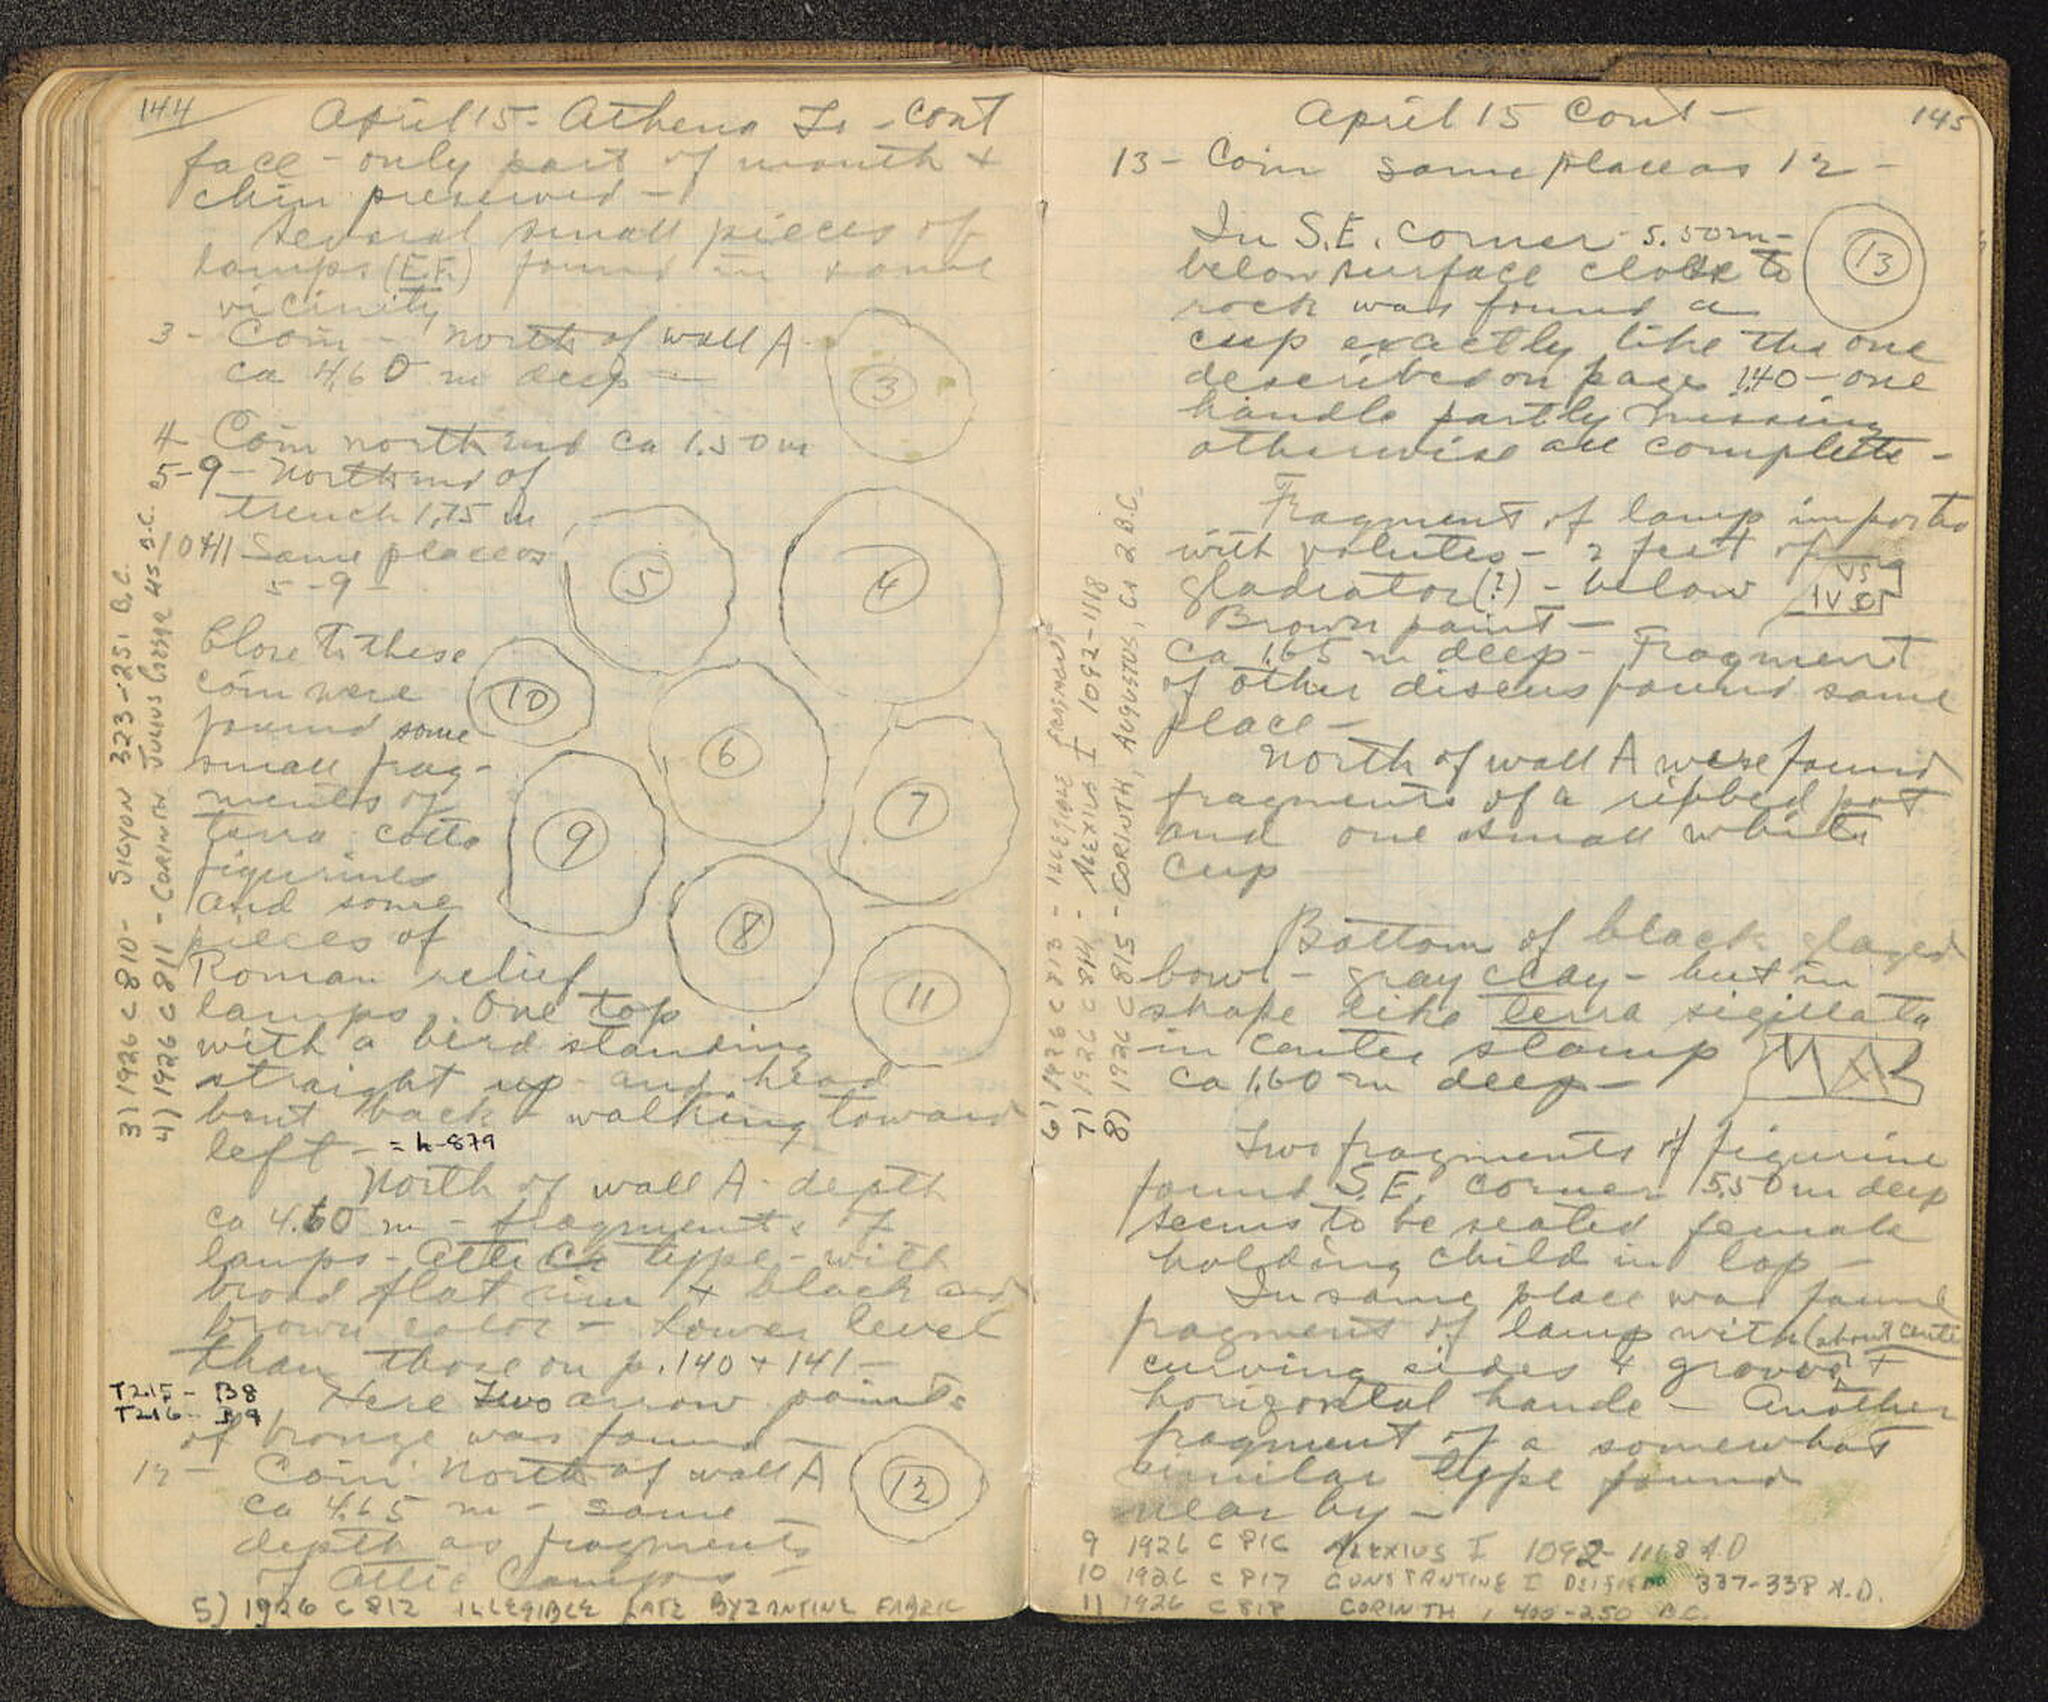 144
April 15 - Athena Tr - Cont
face - only part of mouth +
chin preserved -
Several small pieces of
lamps (E.F.) found in same
vicinity
3 - Coin - North of wall A
ca 4.60 m deep -
3
4 Coin north end ca 1.50 m
5-9 - North end of
trench 1.75 m
10+11 Same place as
5-9 -
5
4
Close to these
coin were
found some
small frag-
ments of
terra cotta
figurines
and some
pieces of
Roman relief
lamps. One top
with a bird standing
straight up and head
bent back - walking toward
left - = L-879
10
6
7
9
8
11
North of wall A - depth
ca 4.60 m - fragments of
lamps - Attic type - with
broad flat rim + black and
brown color - Lower level
than those on p. 140 + 141 -
T215 - B8
T216 - B9
Here two arrow points
of bronze was found -
12 - Coin North of wall A
ca 4.65 m - same
depth as fragments
of Attic lamps -
12
5) 1926 C 812 ILLEGIBLE LATE BYZANTINE FABRIC
3) 1926 C 810 - SICYON 323-251 B.C.
4) 1926 C 811 - CORINTH JULIUS CAESAR 45 B.C.
145
April 15 Cont -
13 - Coin same place as 12 -
13
In S.E. corner 5.50 m -
below surface close to
rock was found a
cup exactly like the one
described on page 140 - one
handle partly missing
otherwise all complete -
Fragment of lamp
with volutes - 2 feet of
gladiator (?) - below
Brown paint -
ca 1.65 m deep - Fragment
of other discus found same
place -
North of wall A were found
fragments of a ribbed pot
and one small white
cup
Bottom of black glazed
bowl - gray clay - but in
shape like terra sigillata
in center stamp
ca 1.60 m deep -
Two fragments of figurine
found S.E. corner 5.50 m deep
seems to be seated female
holding child in lap -
In same place was found
fragment of lamp with (about center
curving sides + groove +
horizontal hande - Another
fragment of a somewhat
similar type found
near by -
9 1926 C 816 ALEXIUS I 1092-1118 A.D
10 1926 C 817 CONSTANTINE I DEIFIED 337-338 A.D.
11 1926 C 818 CORINTH, 400-250 B.C.
6) 1926 C 813 - ILLEGIBLE FRAGMENT
7) 1926 C 814 - ALEXIUS I 1092-1118
8) 1926 C 815 - CORINTH, AUGUSTUS, CA 2 B.C.